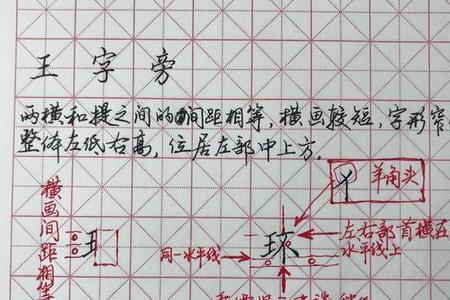 王字旁
两横和提之间的间距相等，横画较短，字形窄
整体左低右高，位居左部中上方。
羊角头
横画间距相等
王
同一水平线
环
左右部首横在
水平线上